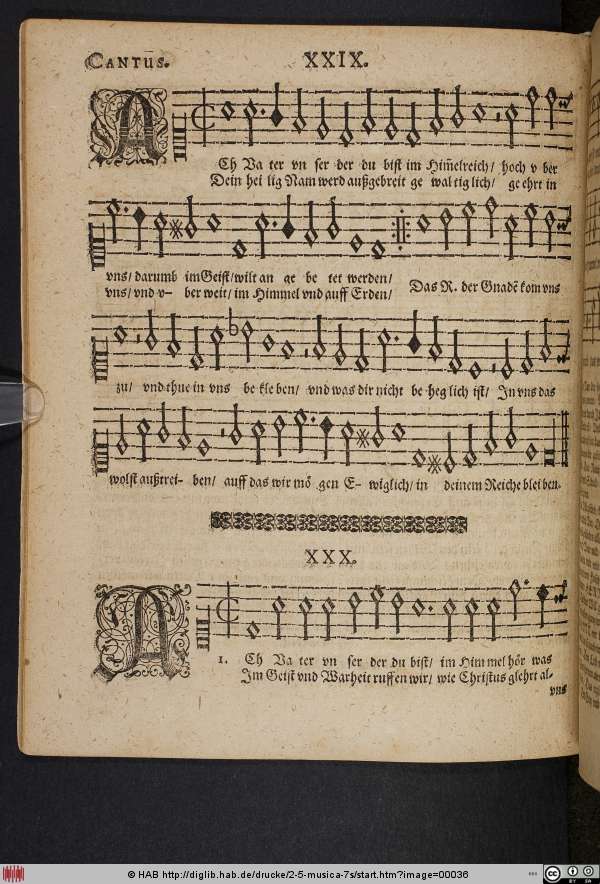 CANTUS.
XXIX.
ACh Va ter vn ser der du bist im Him̃elreich/ hoch v ber
Dein hei lig Nam werd außgebreit ge wal tig lich/ ge ehrt in
vns/ darumb im Geist/ wilt an ge be tet werden/
vns/ vnd v- ber weit/ im Himmel vnd auff Erden/ Das R. der Gnadẽ kom vns
zu/ vnd thue in vns be kle ben/ vnd was dir nicht be heg lich ist/ In vns das
wolst außtrei- ben/ auff das wir mö gen E- wiglich/ in deinem Reiche blei ben.
XXX.
1. ACh Va ter vn ser der du bist/ im Him mel hör was
Im Geist vnd Warheit ruffen wir/ wie Christus glehrt al-
vns
© HAB http://diglib.hab.de/drucke/2-5-musica-7s/start.htm?image=00036